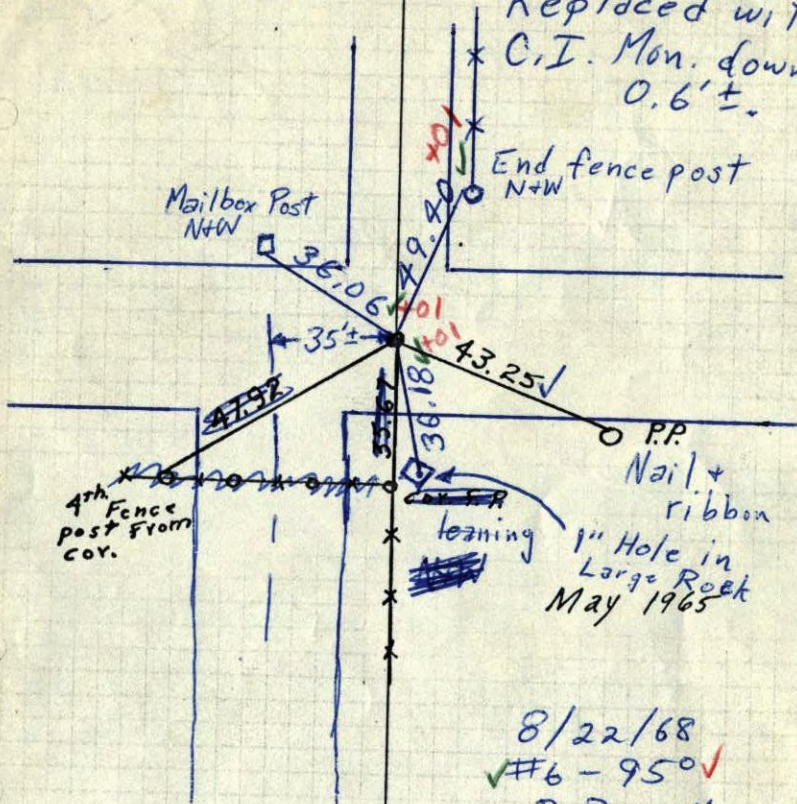 Replaced wi
C.I. Mon. down
0.6'±.
+01
End fence post
N+W
Mailbox Post
N+W
36.06
49.40
+01
35'±
+01
43.25
47.92
35.67
36.18
P.P.
Nail +
ribbon
4th Fence
post from
cor.
Cor. F.P.
leaning
1" Hole in
Large Rock
May 1965
8/22/68
#6 - 95°